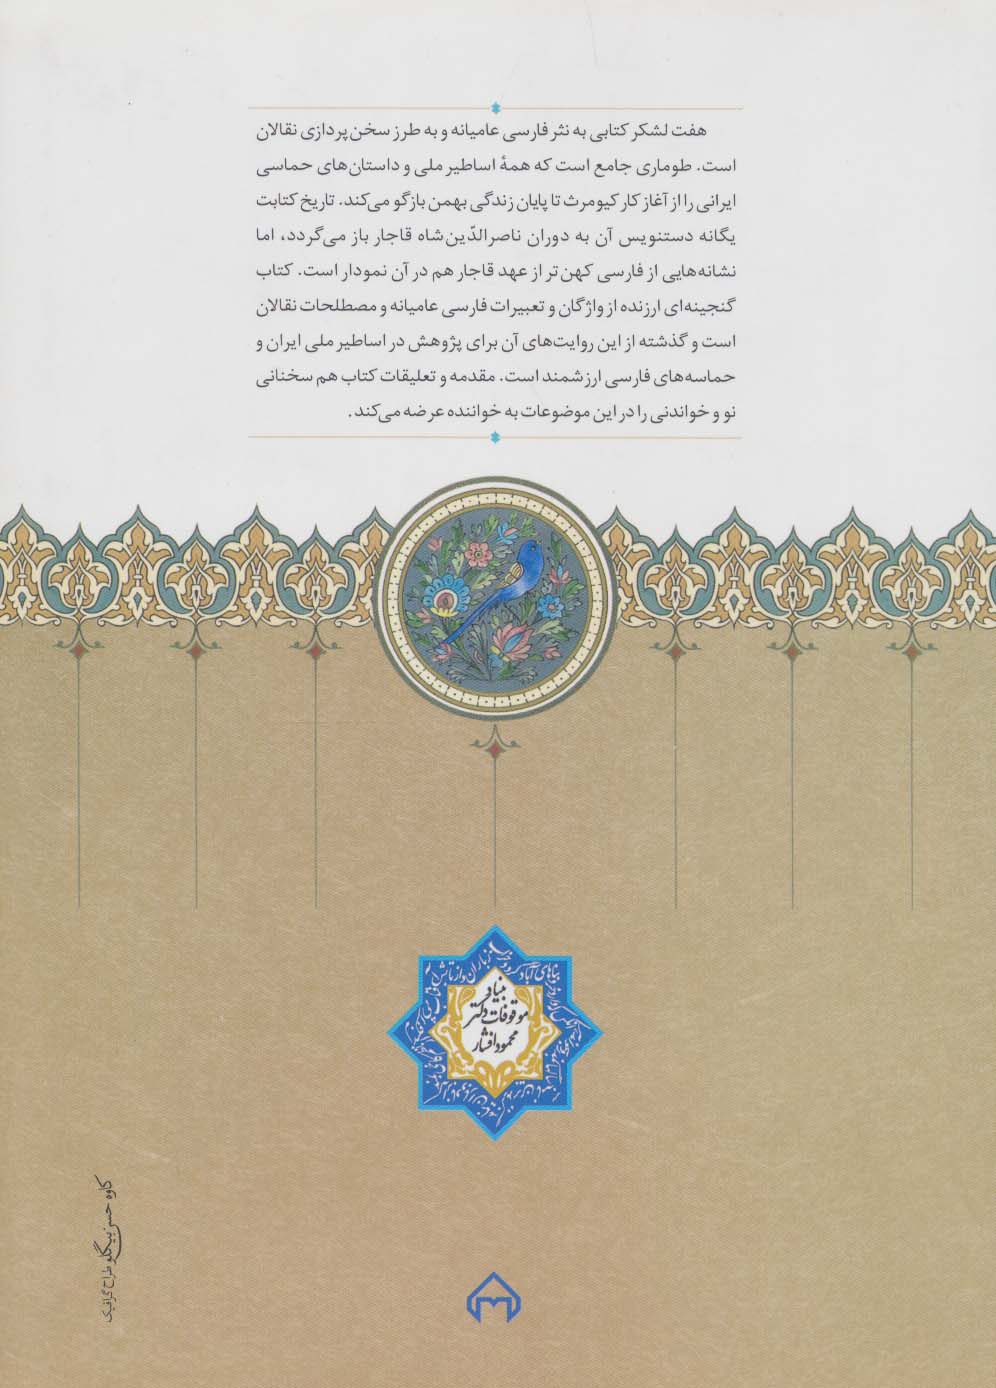 هفت لشکر کتابی به نثر فارسی عامیانه و به طرز سخن‌پردازی نقالان
است. طوماری جامع است که همهٔ اساطیر ملی و داستان‌های حماسی
ایرانی را از آغاز کار کیومرث تا پایان زندگی بهمن بازگو می‌کند. تاریخ کتابت
یگانه دستنویس آن به دوران ناصرالدّین‌شاه قاجار باز می‌گردد، اما
نشانه‌هایی از فارسی کهن‌تر از عهد قاجار هم در آن نمودار است. کتاب
گنجینه‌ای ارزنده از واژگان و تعبیرات فارسی عامیانه و مصطلحات نقالان
است و گذشته از این روایت‌های آن برای پژوهش در اساطیر ملی ایران و
حماسه‌های فارسی ارزشمند است. مقدمه و تعلیقات کتاب هم سخنانی
نو و خواندنی را در این موضوعات به خواننده عرضه می‌کند.
بنیاد
موقوفات دکتر
محمود افشار
کاوه حسن بیگلو طراح گرافیک